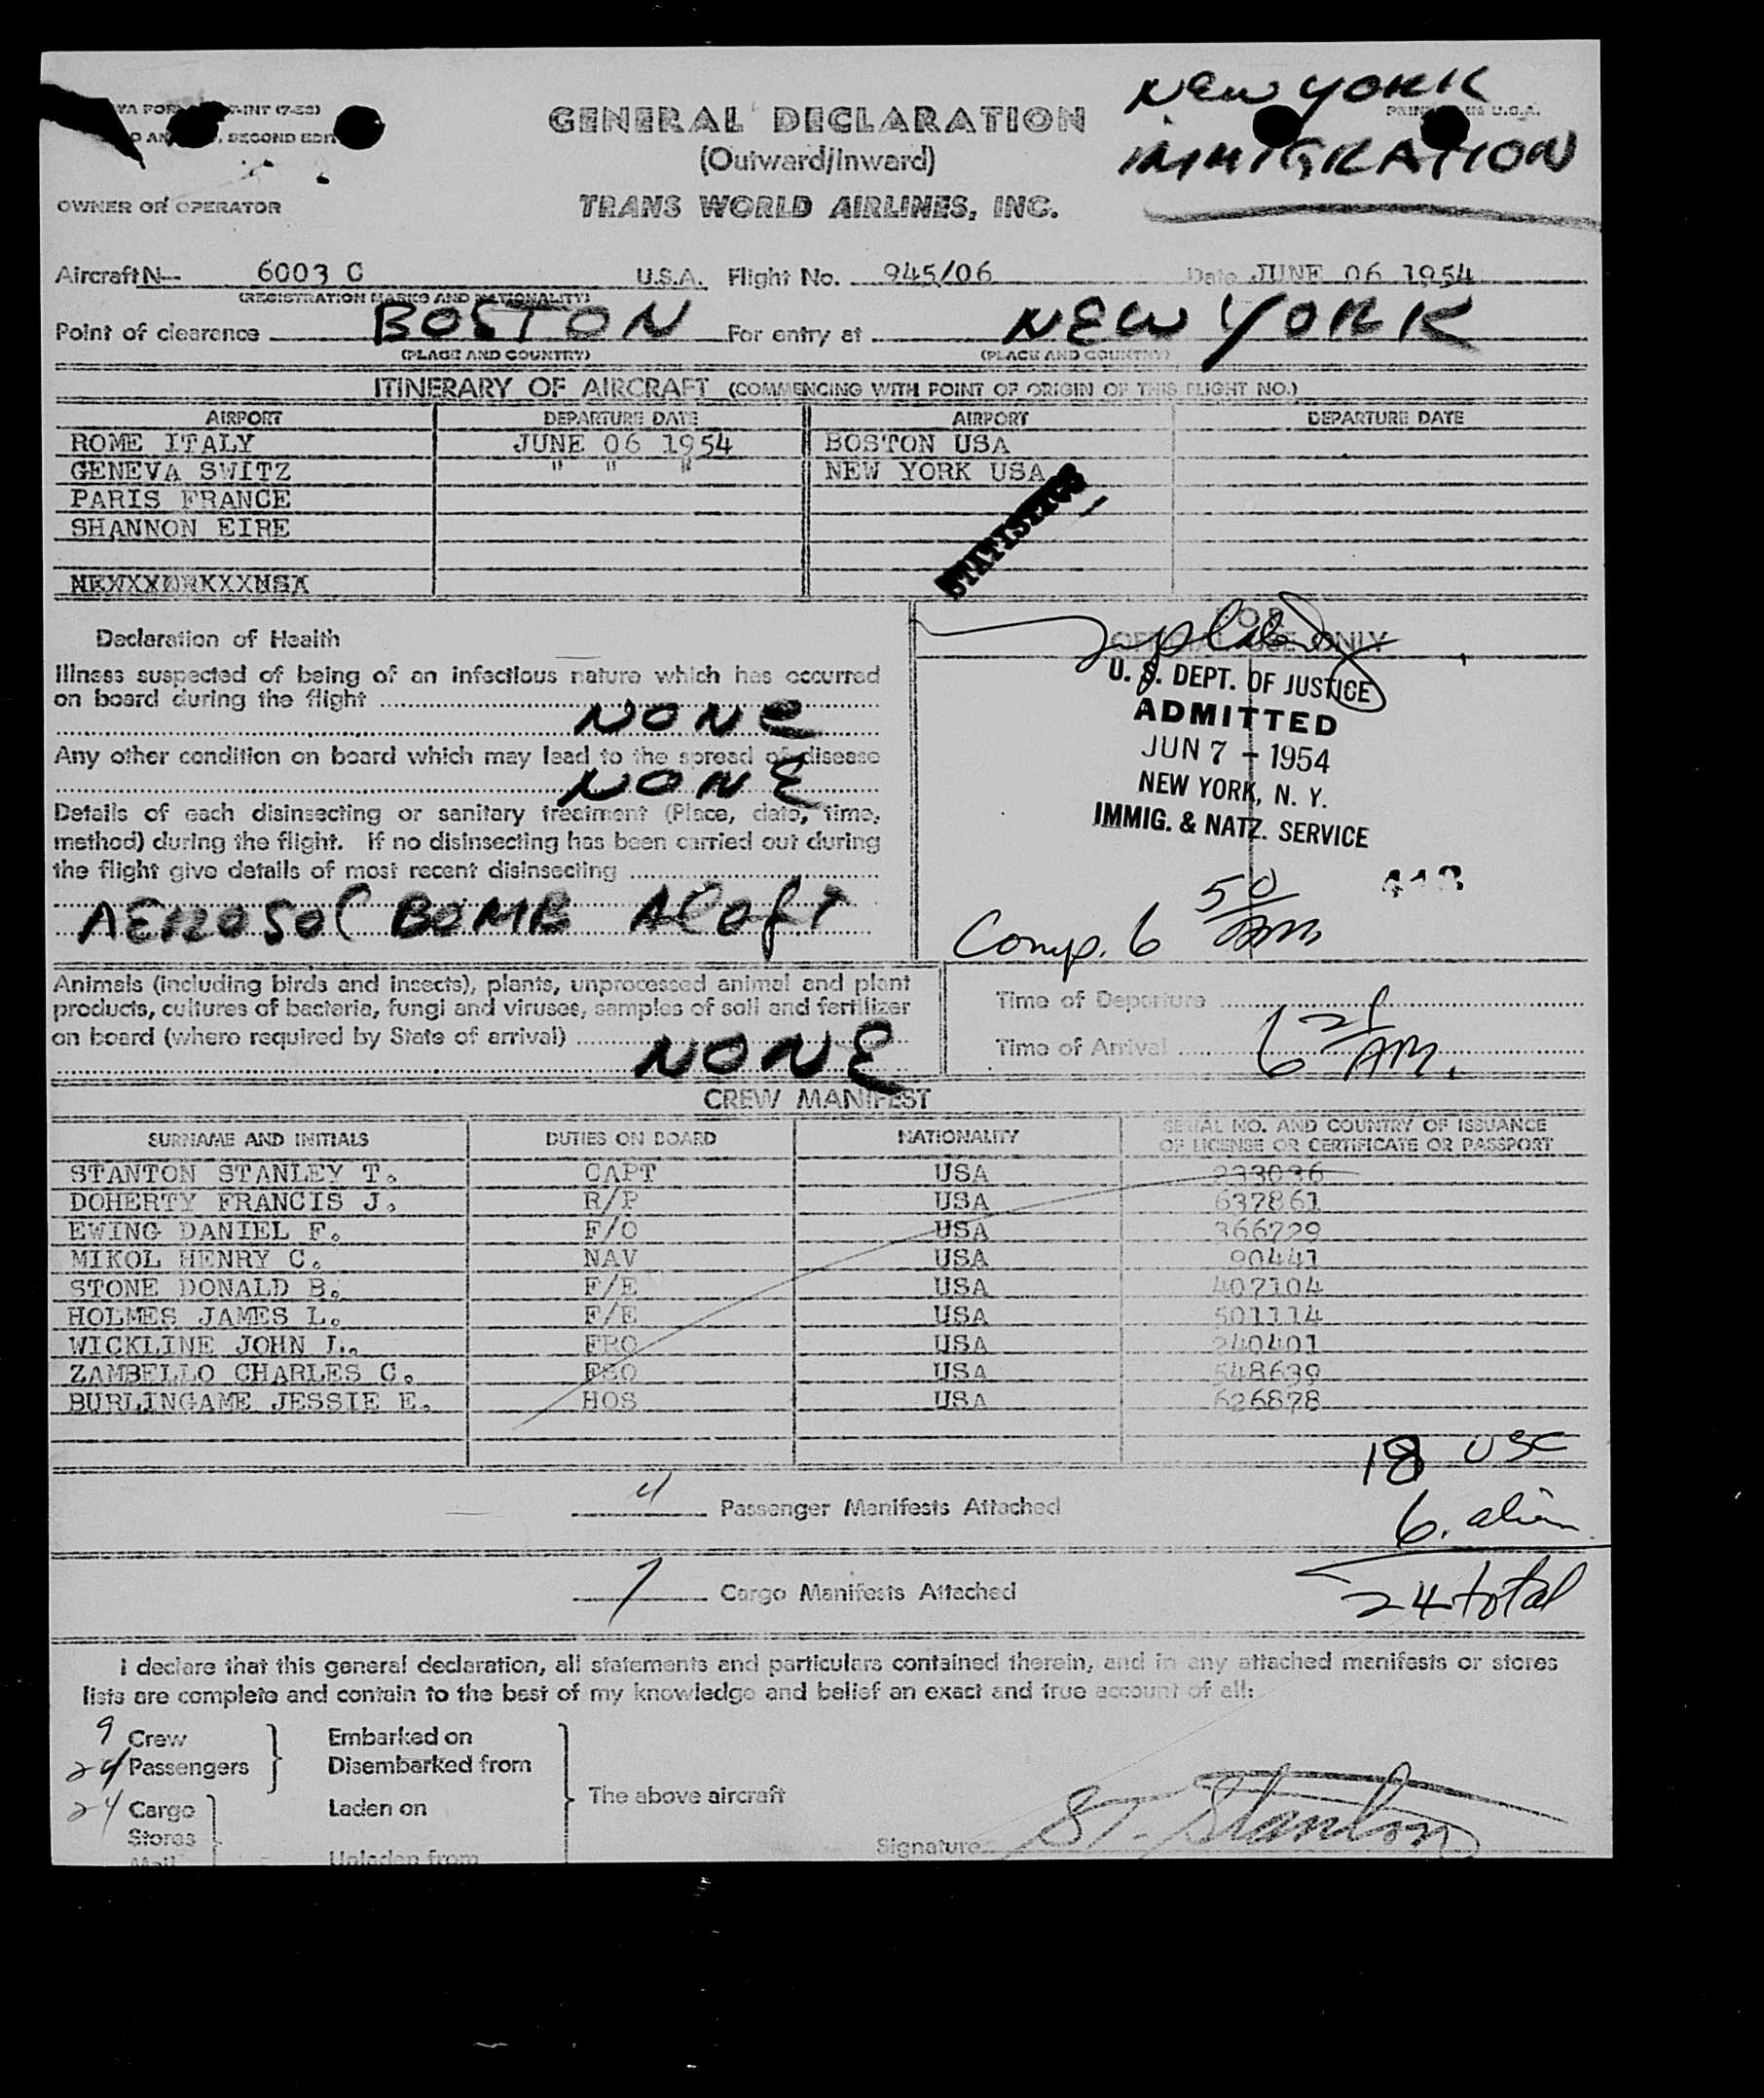 NEW YORK
IMMIGRATION
GENERAL DECLARATION
(Outward/Inward)
OWNER OR OPERATOR
TRANS WORLD AIRLINES, INC.
Aircraft N- 6003 C U.S.A. Flight No. 945/06 Date JUNE 06 1954
(REGISTRATION MARKS AND NATIONALITY)
Point of clearance BOSTON For entry at NEW YORK
(PLACE AND COUNTRY) (PLACE AND COUNTRY)
ITINERARY OF AIRCRAFT (COMMENCING WITH POINT OF ORIGIN OF THIS FLIGHT NO.)
AIRPORT DEPARTURE DATE AIRPORT DEPARTURE DATE
ROME ITALY JUNE 06 1954 BOSTON USA
GENEVA SWITZ " " " NEW YORK USA
PARIS FRANCE
SHANNON EIRE
STATISTICS
Declaration of Health
FOR
OFFICIAL USE ONLY
Illness suspected of being of an infectious nature which has occurred
on board during the flight
NONE
Any other condition on board which may lead to the spread of disease
NONE
Details of each disinsecting or sanitary treatment (Place, date, time,
method) during the flight. If no disinsecting has been carried out during
the flight give details of most recent disinsecting
AEROSOL BOMB ALOFT
U. S. DEPT. OF JUSTICE
ADMITTED
JUN 7 - 1954
NEW YORK, N. Y.
IMMIG. & NATZ. SERVICE
Comp. 6 50/AM
Animals (including birds and insects), plants, unprocessed animal and plant
products, cultures of bacteria, fungi and viruses, samples of soil and fertilizer
on board (where required by State of arrival)
NONE
Time of Departure
Time of Arrival 6 21/AM.
CREW MANIFEST
SURNAME AND INITIALS DUTIES ON BOARD NATIONALITY SERIAL NO. AND COUNTRY OF ISSUANCE
OF LICENSE OR CERTIFICATE OR PASSPORT
STANTON STANLEY T. CAPT USA 233036
DOHERTY FRANCIS J. R/P USA 637861
EWING DANIEL F. F/O USA 366729
MIKOL HENRY C. NAV USA 90441
STONE DONALD B. F/E USA 407104
HOLMES JAMES L. F/E USA 501114
WICKLINE JOHN L. FRO USA 240401
ZAMBELLO CHARLES C. FSO USA 548639
BURLINGAME JESSIE E. HOS USA 626878
18 USC
4 Passenger Manifests Attached
6. alien
1 Cargo Manifests Attached
24 total
I declare that this general declaration, all statements and particulars contained therein, and in any attached manifests or stores
lists are complete and contain to the best of my knowledge and belief an exact and true account of all:
9 Crew Embarked on
24 Passengers Disembarked from
The above aircraft
24 Cargo Laden on
Stores
Mail Unladen from
Signature S.T. Stanton